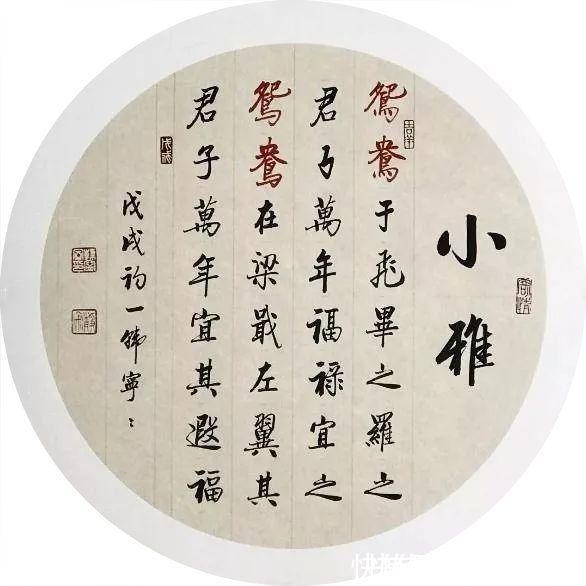 小雅
鴛鴦于飛畢之羅之
君子萬年福祿宜之
鴛鴦在梁戢左翼其
君子萬年宜其遐福
戊戌初一韩寧
吉羊
戊戌